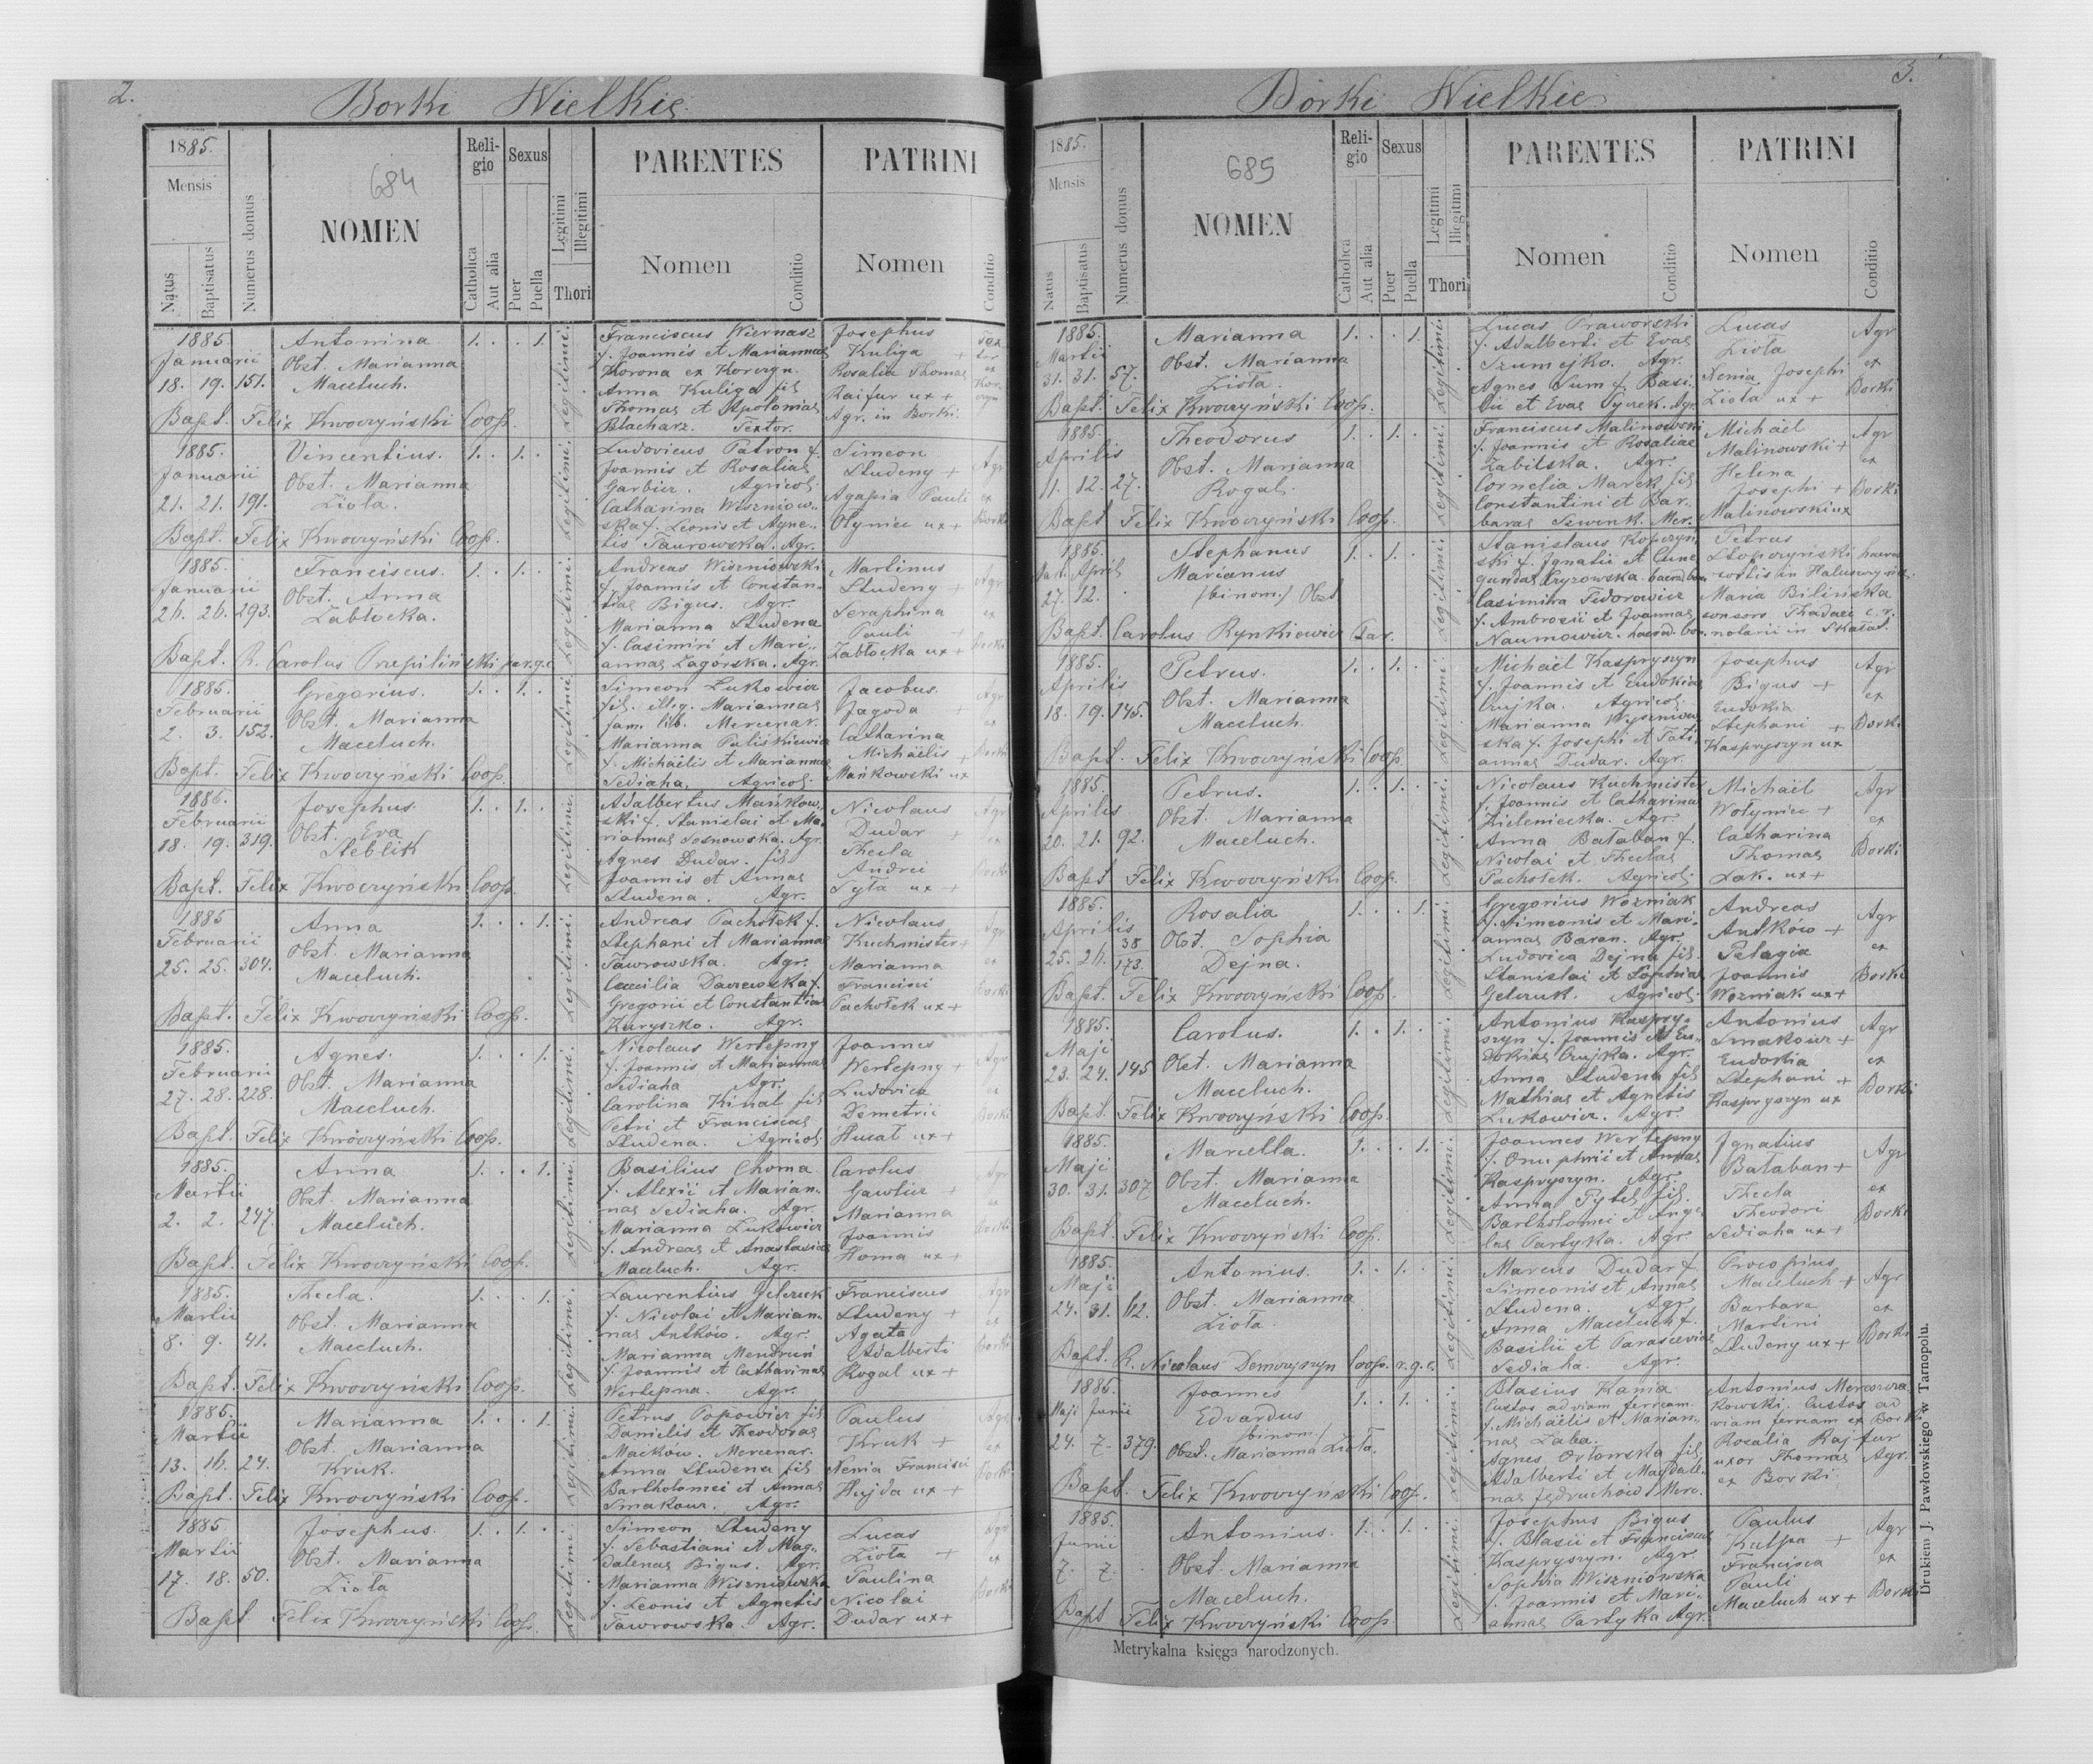 2.
Borki Wielkie
1885.
Mensis
Natus
Baptisatus
Numerus domus
684
NOMEN
Religio
Catholica
Aut alia
Sexus
Puer
Puella
Legitimi
Illegitimi
Thori
PARENTES
Nomen
Conditio
PATRINI
Nomen
Conditio
1885
Januarii
18. 19. 151.
Antonina
Obst. Marianna
Maceluch.
1. . . 1.
Legitimi.
Franciscus Wiernasz
f. Joannis et Mariannae
Korona ex Korczyn.
Anna Kuliga fil.
Thomae et Apoloniae
Blacharz. Textor.
Josephus
Kuliga +
Rosalia Thomae
Rajfur ux +
Agr. in Borki.
Bapt. Felix Kwoczyński Coop.
1885.
Januarii
21. 21. 191.
Vincentius.
Obst. Marianna
Zioła.
1. . 1. .
Legitimi.
Ludovicus Patron f.
Joannis et Rosaliae
Garbicz. Agricol.
Catharina Wiszniow-
ska f. Leonis et Agne-
tis Taurowska. Agr.
Simeon
Studeny +
Agapia Pauli
Ołyniec ux +
Agr
ex
Borki
Bapt. Felix Kwoczyński Coop.
1885.
Januarii
26. 26. 293.
Franciscus.
Obst. Anna
Zabłocka.
1. . 1. .
Legitimi.
Andreas Wiszniowski
f. Joannis et Constan-
tiae Bigus. Agr.
Marianna Studena
f. Casimiri et Mari-
annae Zagórska. Agr.
Martinus
Studeny +
Seraphina
Pauli +
Zabłocka ux +
Agr
ex
Borki
Bapt. R. Carolus Przepiliński par. g. c.
1885.
Februarii
2. 3. 152.
Gregorius.
Obst. Marianna
Maceluch.
1. . 1. .
Legitimi.
Simeon Lukowicz
fil. illeg. Mariannae
fam. lib. Mercenar.
Marianna Puliśkiewicz
f. Michaëlis et Mariannae
Sediaha. Agricol.
Jacobus
Jagoda +
Catharina
Michaëlis +
Mańkowski ux
Agr
ex
Borki
Bapt. Felix Kwoczyński Coop.
1885.
Februarii
18. 19. 319.
Josephus.
Obst. Eva
Steblik
1. . 1. .
Legitimi.
Adalbertus Mańkow-
ski f. Stanislai et Ma-
riannae Sosnowska. Agr.
Agnes Dudar. fil.
Joannis et Annae
Studena. Agr.
Nicolaus
Dudar +
Thecla
Andrei
Syta ux +
Agr
ex
Borki
Bapt. Felix Kwoczyński Coop.
1885
Februarii
25. 25. 304.
Anna
Obst. Marianna
Maceluch.
1. . . 1.
Legitimi.
Andreas Pachołek f.
Stephani et Mariannae
Tawrowska. Agr.
Caecilia Daczewska f.
Gregorii et Constantiae
Kuryszko. Agr.
Nicolaus
Kuchmister +
Marianna
Francisci
Pachołek ux +
Agr
ex
Borki
Bapt. Felix Kwoczyński Coop.
1885.
Februarii
27. 28. 228.
Agnes.
Obst. Marianna
Maceluch.
1. . . 1.
Legitimi.
Nicolaus Wertepny
f. Joannis et Mariannae
Sediaha Agr.
Carolina Kinal fil.
Petri et Franciscae
Studena. Agricol.
Joannes
Wertepny +
Ludovica
Demetrii
Hucał ux +
Agr
ex
Borki
Bapt. Felix Kwoczyński Coop.
1885.
Martii
2. 2. 247.
Anna
Obst. Marianna
Maceluch.
1. . . 1.
Legitimi.
Basilius Choma
f. Alexii et Marian-
nae Sediaha. Agr.
Marianna Lukowicz
f. Andreae et Anastasiae
Maceluch. Agr.
Carolus
Gawlicz +
Marianna
Joannis
Homa ux +
Agr
ex
Borki
Bapt. Felix Kwoczyński Coop.
1885.
Martii
8. 9. 41.
Thecla.
Obst. Marianna
Maceluch.
1. . . 1.
Legitimi.
Laurentius Gelczuk
f. Nicolai et Marian-
nae Antków. Agr.
Marianna Mendruń
f. Joannis et Catharinae
Wertepna. Agr.
Franciscus
Studeny +
Agata
Adalberti
Rogal ux +
Agr
ex
Borki
Bapt. Felix Kwoczyński Coop.
1885.
Martii
13. 16. 24.
Marianna
Obst. Marianna
Kruk.
1. . . 1.
Legitimi.
Petrus Popowicz fil.
Danielis et Theodorae
Maćków. Mercenar.
Anna Studena fil.
Bartholomei et Annae
Smakouz. Agr.
Paulus
Kruk +
Xenia Francisci
Hujda ux +
Agr
ex
Borki
Bapt. Felix Kwoczyński Coop.
1885
Martii
17. 18. 50.
Josephus.
Obst. Marianna
Zioła
1. . 1. .
Legitimi.
Simeon Studeny
f. Sebastiani et Mag-
dalenae Bigus. Agr.
Marianna Wiszniowska
f. Leonis et Agnetis
Tawrowska. Agr.
Lucas
Zioła +
Paulina
Nicolai
Dudar ux +
Agr
ex
Borki
Bapt Felix Kwoczyński Coop.
3.
Borki Wielkie
1885.
Mensis
Natus
Baptisatus
Numerus domus
685
NOMEN
Religio
Catholica
Aut alia
Sexus
Puer
Puella
Legitimi
Illegitimi
Thori
PARENTES
Nomen
Conditio
PATRINI
Nomen
Conditio
1885.
Martii
31. 31. 57.
Marianna
Obst. Marianna
Zioła.
1. . . 1.
Legitimi.
Lucas Praworski
f. Adalberti et Evae
Szumejko. Agr.
Agnes Sum f. Basi-
lii et Evae Gyrek. Agr.
Lucas
Zioła
Xenia Josephi
Zioła ux +
Agr
ex
Borki
Bapt. Felix Kwoczyński Coop.
1885.
Aprilis
11. 12. 27.
Theodorus
Obst. Marianna
Rogal.
1. . 1. .
Legitimi.
Franciscus Malinowski
f. Joannis et Rosaliae
Zabilska. Agr.
Cornelia Marek fil.
Constantini et Bar-
barae Szwenk. Mer.
Michaël
Malinowski +
Helena
Josephi +
Malinowski ux
Agr
ex
Borki
Bapt Felix Kwoczyński Coop.
1885.
Mart. April.
27. 12.
Stephanus
Marianus
/binom./ Obst
1. . 1. .
Legitimi.
Stanislaus Kopczyń-
ski f. Ignatii et Cune-
gundae Cryzowska.
Casimira Fedorowicz
f. Ambrosii et Joannae
Naumowicz. haered. bon.
Petrus
Słopczyński
in Haluszczyńce.
Maria Bilińska
consors Thadaei c. r.
notarii in Skałat.
Bapt. Carolus Rynkiewicz Par.
1885.
Aprilis
18. 19. 145.
Petrus.
Obst. Marianna
Maceluch.
1. . 1. .
Legitimi.
Michaël Kaspryszyn
f. Joannis et Eudokiae
Czujka. Agricol.
Marianna Wiszniow-
ska f. Josephi et Tati-
annae Dudar. Agr.
Josephus
Bigus +
Eudokia
Stephani +
Kaspryszyn ux
Agr
ex
Borki
Bapt. Felix Kwoczyński Coop.
1885.
Aprilis
20. 21. 92.
Petrus.
Obst. Marianna
Maceluch.
1. . 1. .
Legitimi.
Nicolaus Kuchmister
f. Joannis et Catharina
Zieleniecka. Agr.
Anna Bałaban f.
Nicolai et Theclae
Pachołek. Agricol.
Michaël
Wołyniec +
Catharina
Thomae
Lak. ux +
Agr
ex
Borki
Bapt Felix Kwoczyński Coop.
1885.
Aprilis
25. 26. 38
173.
Rosalia
Obst. Sophia
Dejna.
1. . . 1.
Legitimi.
Gregorius Woźniak
f. Simeonis et Mari-
annae Baran. Agr.
Ludovica Dejna fil.
Stanislai et Sophiae
Gelczuk. Agricol.
Andreas
Antków +
Pelagia
Joannis
Woźniak ux +
Agr
ex
Borki
Bapt. Felix Kwoczyński Coop.
1885.
Maji
23. 24. 145
Carolus.
Obst. Marianna
Maceluch.
1. . 1. .
Legitimi.
Antonius Kaspry-
szyn f. Joannis et Eu-
dokiae Czujka. Agr.
Anna Studena fil.
Mathiae et Agnetis
Lukowicz. Agr.
Antonius
Smakouz +
Eudokia
Stephani +
Kaspryszyn ux
Agr
ex
Borki
Bapt. Felix Kwoczyński Coop.
1885.
Maji
30. 31. 307
Marcella.
Obst. Marianna
Maceluch.
1. . . 1.
Legitimi.
Joannes Wertepny
f. Onuphrii et Annae
Kaspryszyn. Agr.
Anna Pytel fil.
Bartholomei et Ange-
lae Partyka. Agr
Ignatius
Bałaban +
Thecla
Theodori
Sediaha ux +
Agr
ex
Borki
Bapt. Felix Kwoczyński Coop.
1885.
Maji
24. 31. 62.
Antonius.
Obst. Marianna
Zioła.
1. . 1. .
Legitimi.
Marcus Dudar f.
Simeonis et Annae
Studena. Agr.
Anna Maceluch f.
Basilii et Parasceviae
Sediaha. Agr.
Procopius
Maceluch +
Barbara
Martini
Studeny ux +
Agr
ex
Borki
Bapt. R. Nicolaus Demczyszyn Coop. r. g. c.
1885.
Maji Junii
24. 7. 379.
Joannes
Edvardus
/binom/
Obst. Marianna Zioła.
1. . 1. .
Legitimi.
Blasius Kania
Custos ad viam ferream.
f. Michaëlis et Marian-
nae Zaba.
Agnes Orłowska fil.
Adalberti et Magdale-
nae Jędruchów. Merc.
Antonius
Custos ad
viam ferream ex Borki
Rosalia Rajfur
uxor Thomae Agr.
ex Borki
Bapt. Felix Kwoczyński Coop.
1885.
Junii
7. 7.
Antonius.
Obst. Marianna
Maceluch.
1. . 1. .
Legitimi.
Josephus Bigus
f. Blasii et Franciscae
Kaspryszyn. Agr.
Sophia Wiszniowska
f. Joannis et Mari-
annae Partyka Agr.
Paulus
Kulpa +
Francisca
Pauli
Maceluch ux +
Agr
ex
Borki
Bapt Felix Kwoczyński Coop
Metrykalna księga narodzonych.
Drukiem J. Pawłowskiego w Tarnopolu.